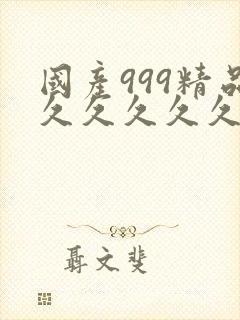 國產999精品
久久久久久
聶文斐